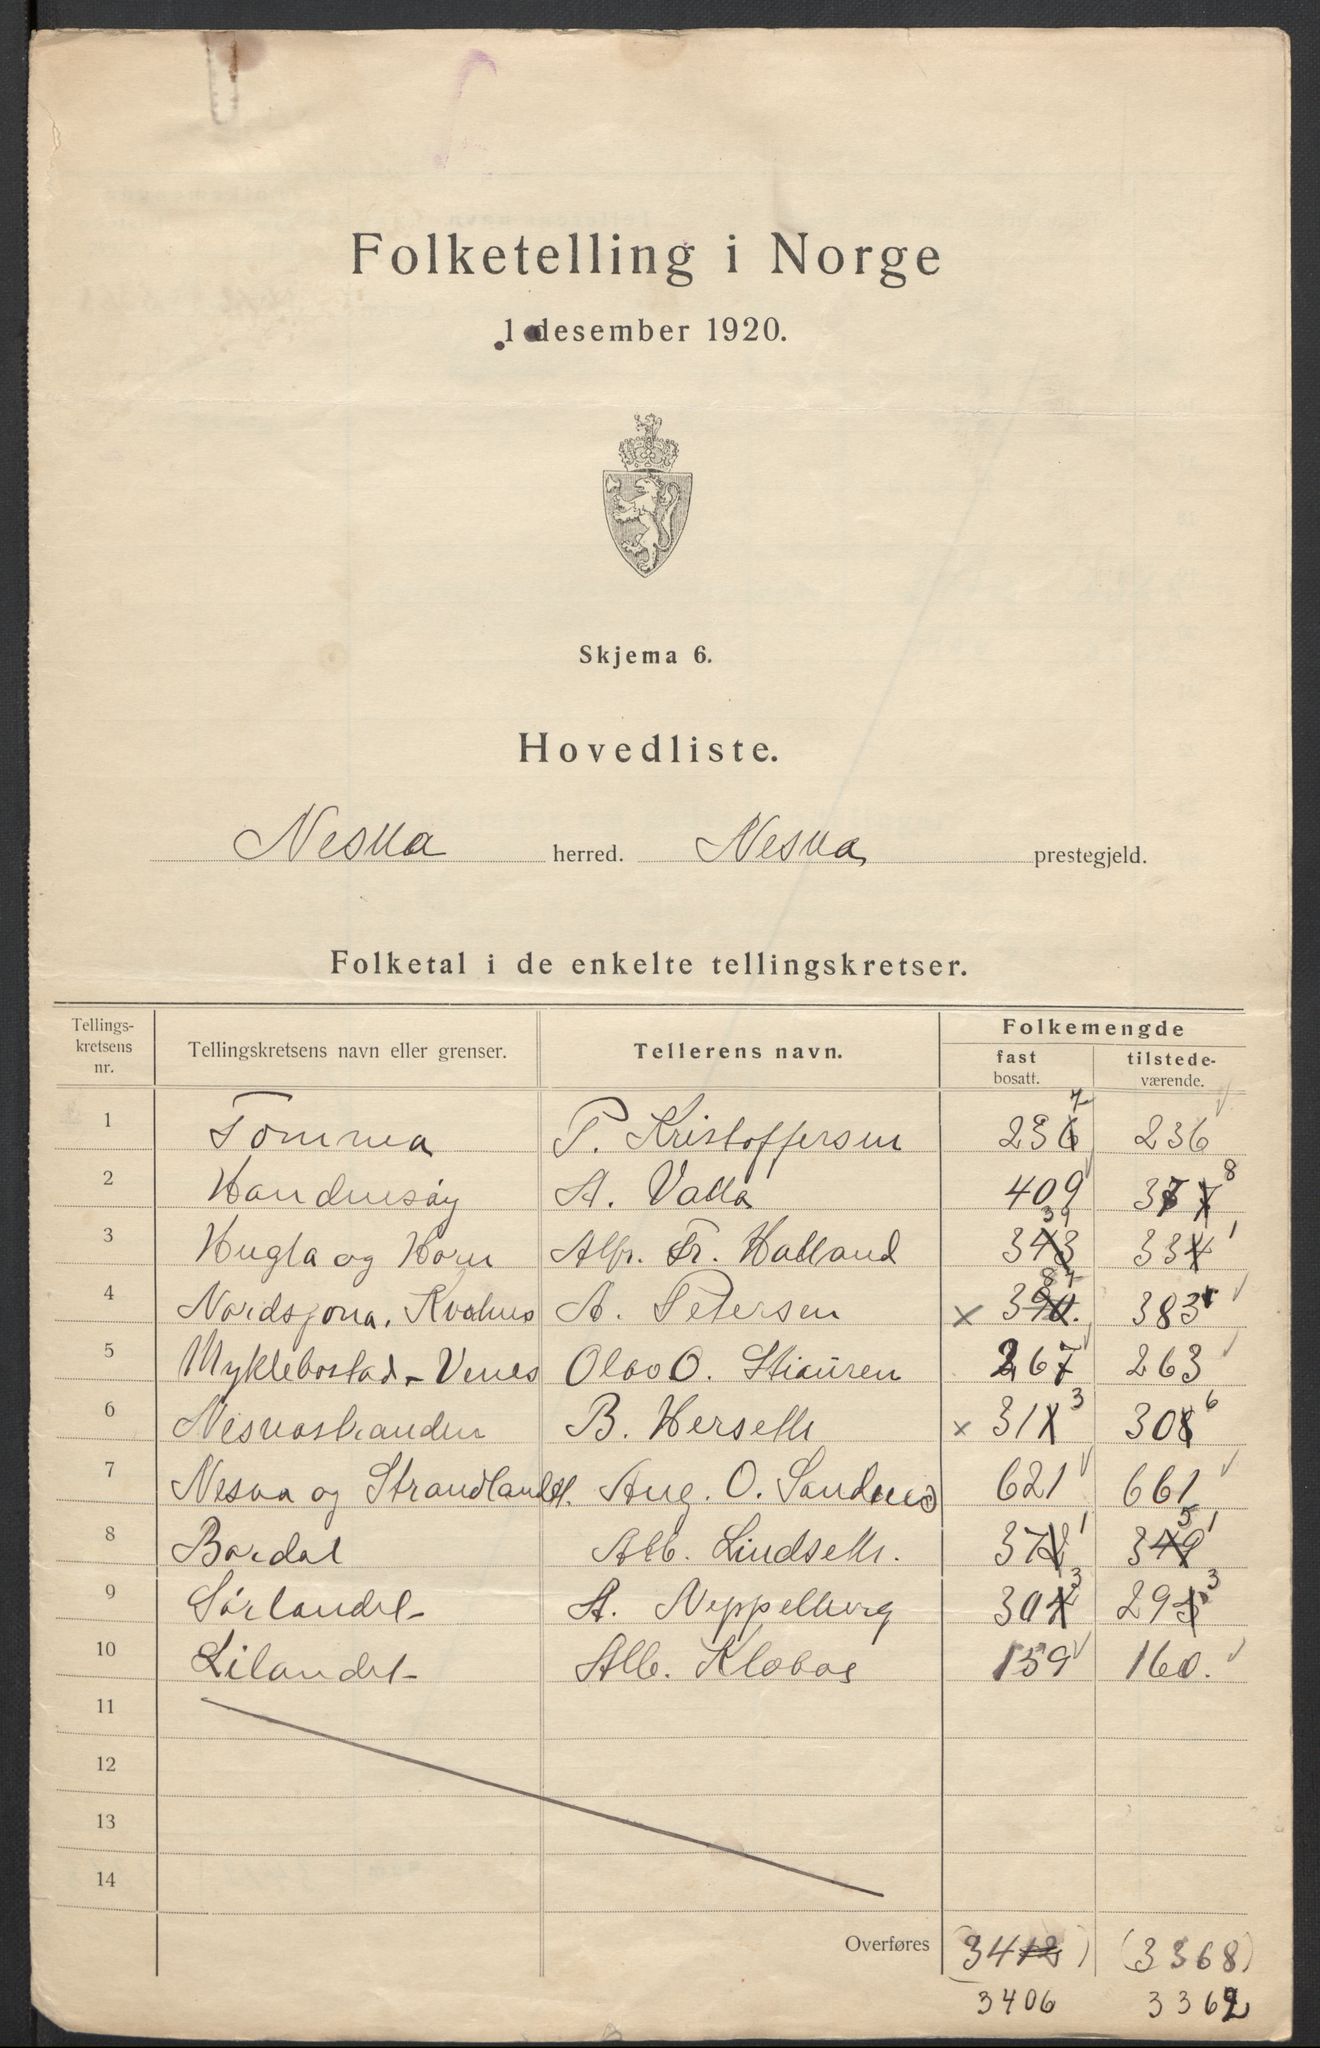 Folketelling i Norge
1 desember 1920.
Skjema 6.
Hovedliste.
Nesna herred. Nesna prestegjeld.
Folketal i de enkelte tellingskretser.
Tellings-
kretsens
nr.
Tellingskretsens navn eller grenser.
Tellerens navn.
Folkemengde
fast
bosatt.
tilstede-
værende.
1 Tomma P. Kristoffersen 236 7 236
2 Handnesøy A. Valla 409 377 8
3 Hugla og Horn Alfr. Fr. Halland 343 39 334 1
4 Nordsjona, Kvalnes A. Petersen × 390. 87 383
5 Myklebostad - Venes Olav O. 267 263
6 Nesnastranden B. Herseth × 311 3 308 6
7 Nesna og Strandlandet. Aug. O. Sandnes 621 661
8 Bardal Alb. Lindseth. 372 1 349 51
9 Sørlandet A. Neppelberg 301 3 295 3
10 Lilandet Alb. Klobas 159 160.
11
12
13
14
Overføres (3412) (3368)
3406 3362